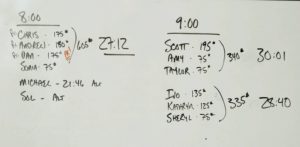 8:00
CHRIS - 175#
ANDREW - 180#
DAN - 175#
SONIA - 75#
605#
27:12
MICHAEL - 21:46
SOL -
9:00
SCOTT - 195#
AMY - 75#
TAYLOR - 75#
340#
30:01
IVO - 135#
KATHRYN - 125#
SHERYL - 75#
335#
28:40